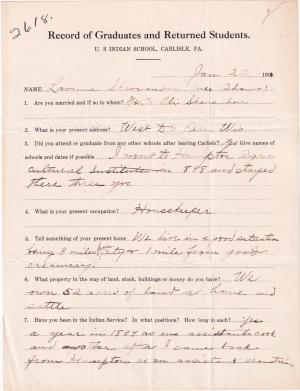 2618.
Record of Graduates and Returned Students.
U. S INDIAN SCHOOL, CARLISLE, PA.
Jan 23 191
NAME Lavinia
1. Are you married and if so to whom? Yes. Eli Skenandore
2. What is your present address? West De Pere, Wis.
3. Did you attend or graduate from any other schools after leaving Carlisle? Yes Give names
of schools and dates if possible I went to Hampton Agri-
cultural Institute in 898 and stayed
there three yrs.
4. What is your present occupation? Housekeeper.
5. Tell something of your present home We live in a good situation
being 3 miles from City & 1 mile from good
creamery.
6. What property in the way of land, stock, buildings or money do you have? We
own 52 acres of land a house and
cattle
7. Have you been in the Indian Service? In what positions? How long in each? Yes
a year in 1897 as an assistant cook
and another after I came back
from Hampton as an assistant